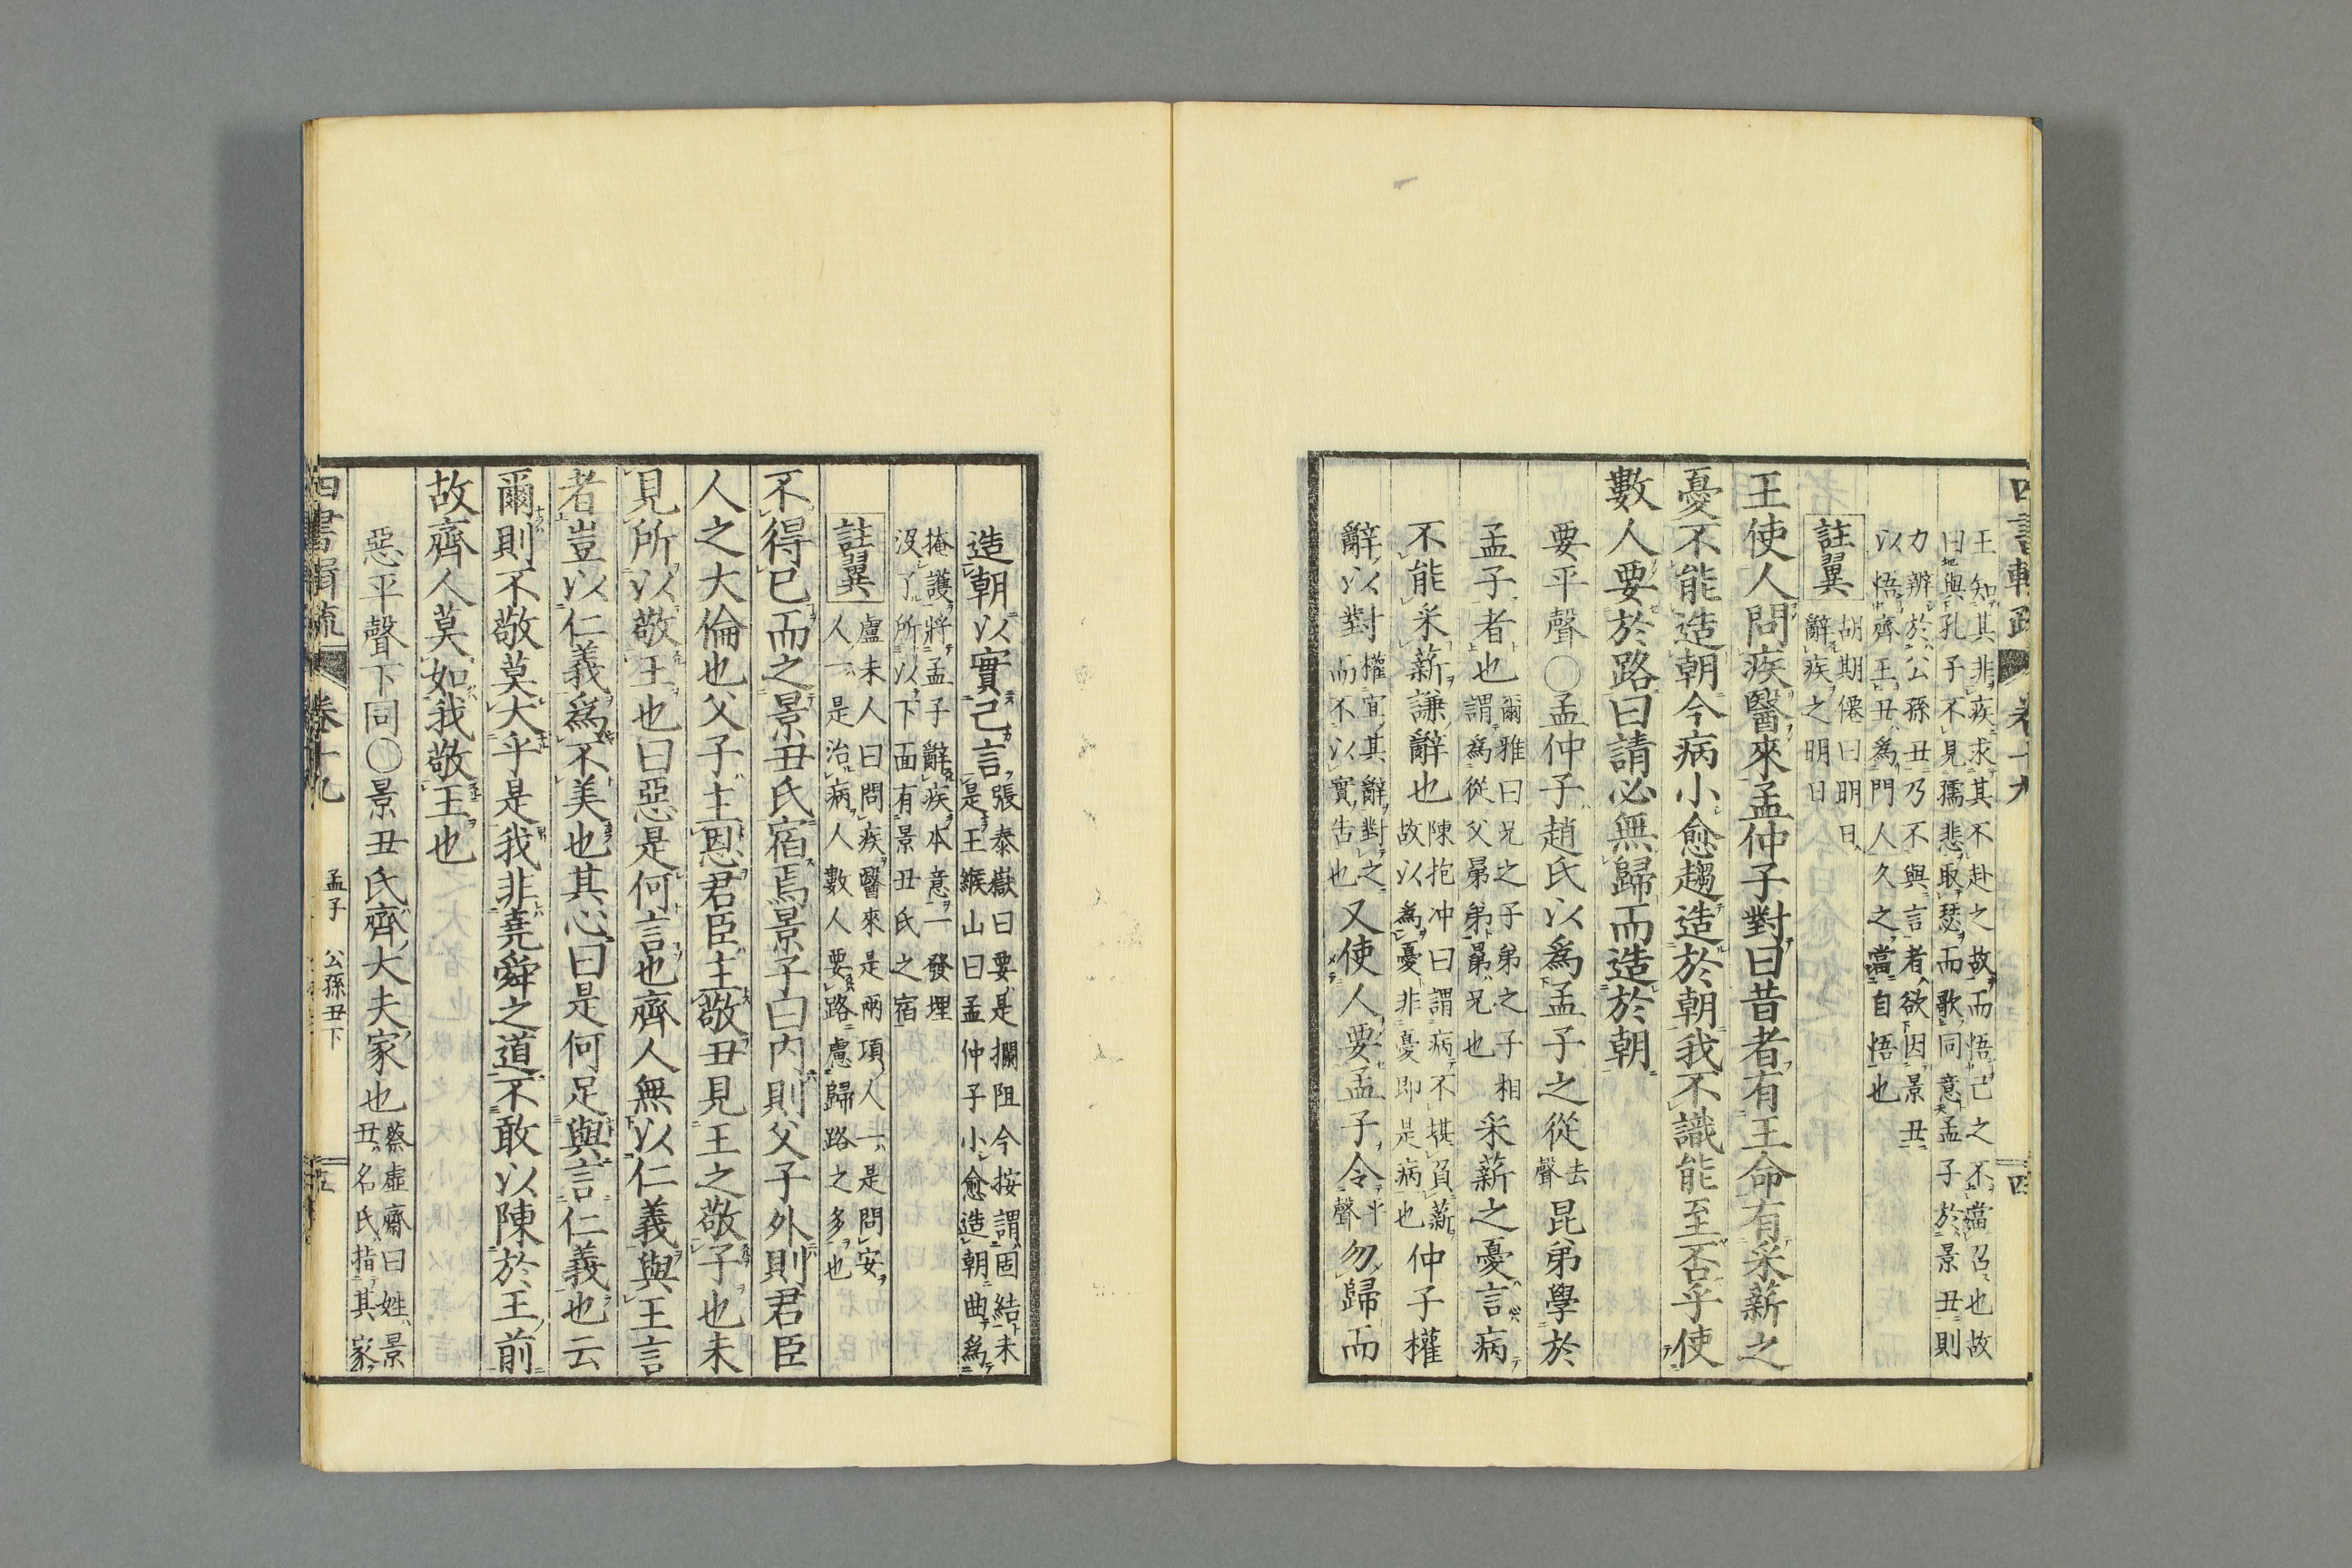 王知其非疾求其不赴之故而悟己之不當召也故
曰與孔子不見孺悲取瑟而歌同意孟子於景丑則
力辨於公孫丑乃不與言者欲因景丑
以悟齊王丑為門人久之當自悟也
註翼
胡期僊曰明日
辭疾之明日
王使人問疾醫來孟仲子對曰昔者有王命有采薪之
憂不能造朝今病小愈趨造於朝我不識能至否乎使
數人要於路曰請必無歸而造於朝
要平聲○孟仲子趙氏以為孟子之從去聲昆弟學於
孟子者也爾雅曰兄之子弟之子相謂為從父晜弟弟晜兄也采薪之憂言病
不能采薪謙辭也陳抱冲曰謂病不堪負薪故以為憂非憂即是病也仲子權
辭以對權宜其辭對之而不以實告也又使人要孟子令平聲勿歸而
造朝以實己言張泰嶽曰要是攔阻今按謂固結未是王緱山曰孟仲子小愈造朝曲為
掩護將孟子辭疾本意一發埋
沒了所以下面有景丑氏之宿
註翼
盧未人曰問疾醫來是兩項人一是問安
人一是治病人數人要路慮歸路之多也
不得已而之景丑氏宿焉景子曰內則父子外則君臣
人之大倫也父子主恩君臣主敬丑見王之敬子也未
見所以敬王也曰惡是何言也齊人無以仁義與王言
者豈以仁義為不美也其心曰是何足與言仁義也云
爾則不敬莫大乎是我非堯舜之道不敢以陳於王前
故齊人莫如我敬王也
惡平聲下同○景丑氏齊大夫家也蔡虛齋曰姓景丑名氏指其家
四書輯疏 卷十九 孟子 公孫丑下